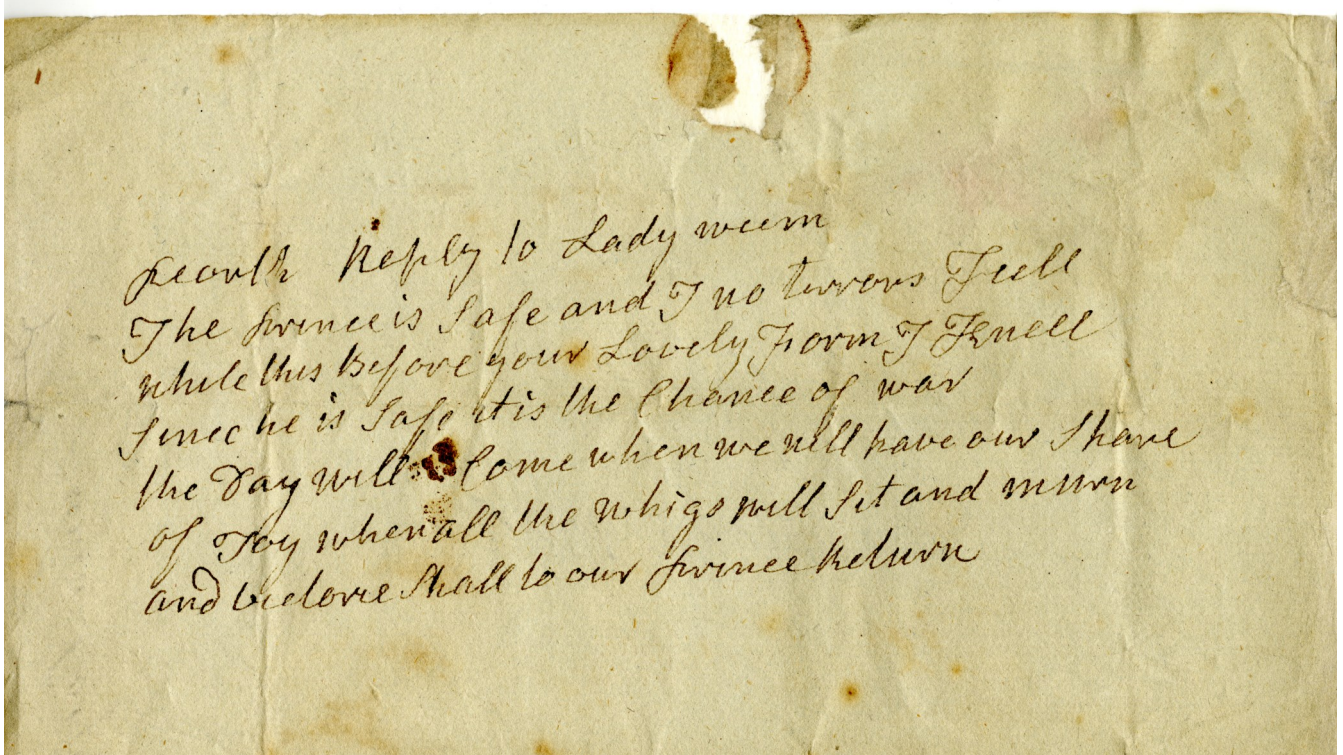 Pearth Reply to Lady weem
The Prince is Safe and I no terrors Feell
while this Before your Lovely Form I Knell
Since he is Safe it is the Chance of war
the Day will Come when we will have our Share
of Joy when all the Whigs will Sit and murn
and victorie Shall to our Prince Return